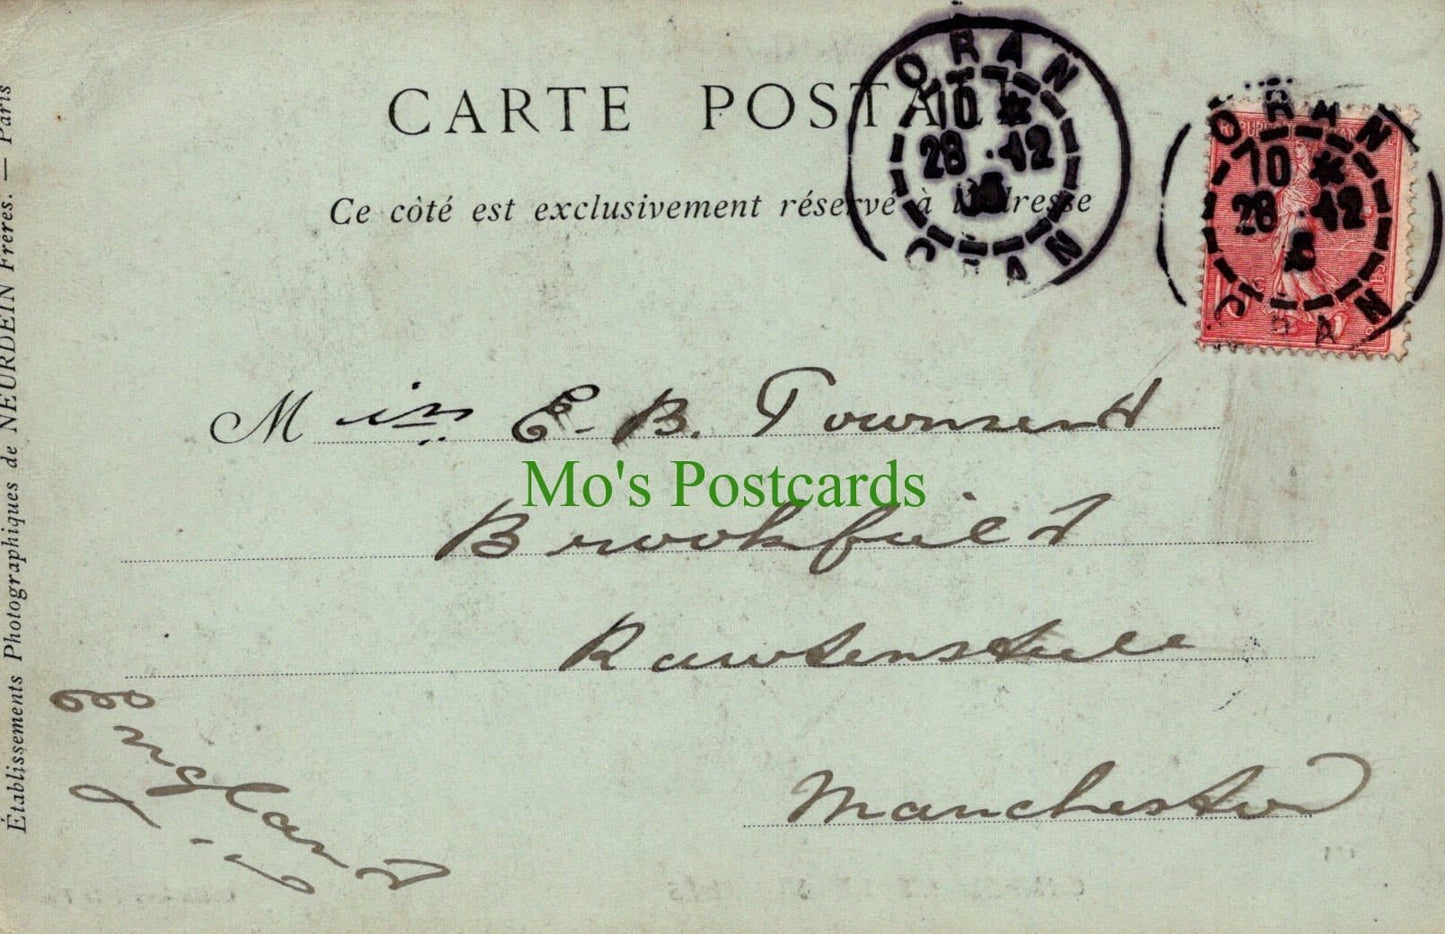 CARTE POSTALE
Ce côté est exclusivement réservé à l'adresse
ORAN
10 *
28 12
ORAN
ORAN
10 *
28 12
ORAN
Miss E. B. Townsend
Mo's Postcards
Brookfield
Rawtenstall
Manchester
England
Établissements Photographiques de NEURDEIN Frères. — Paris